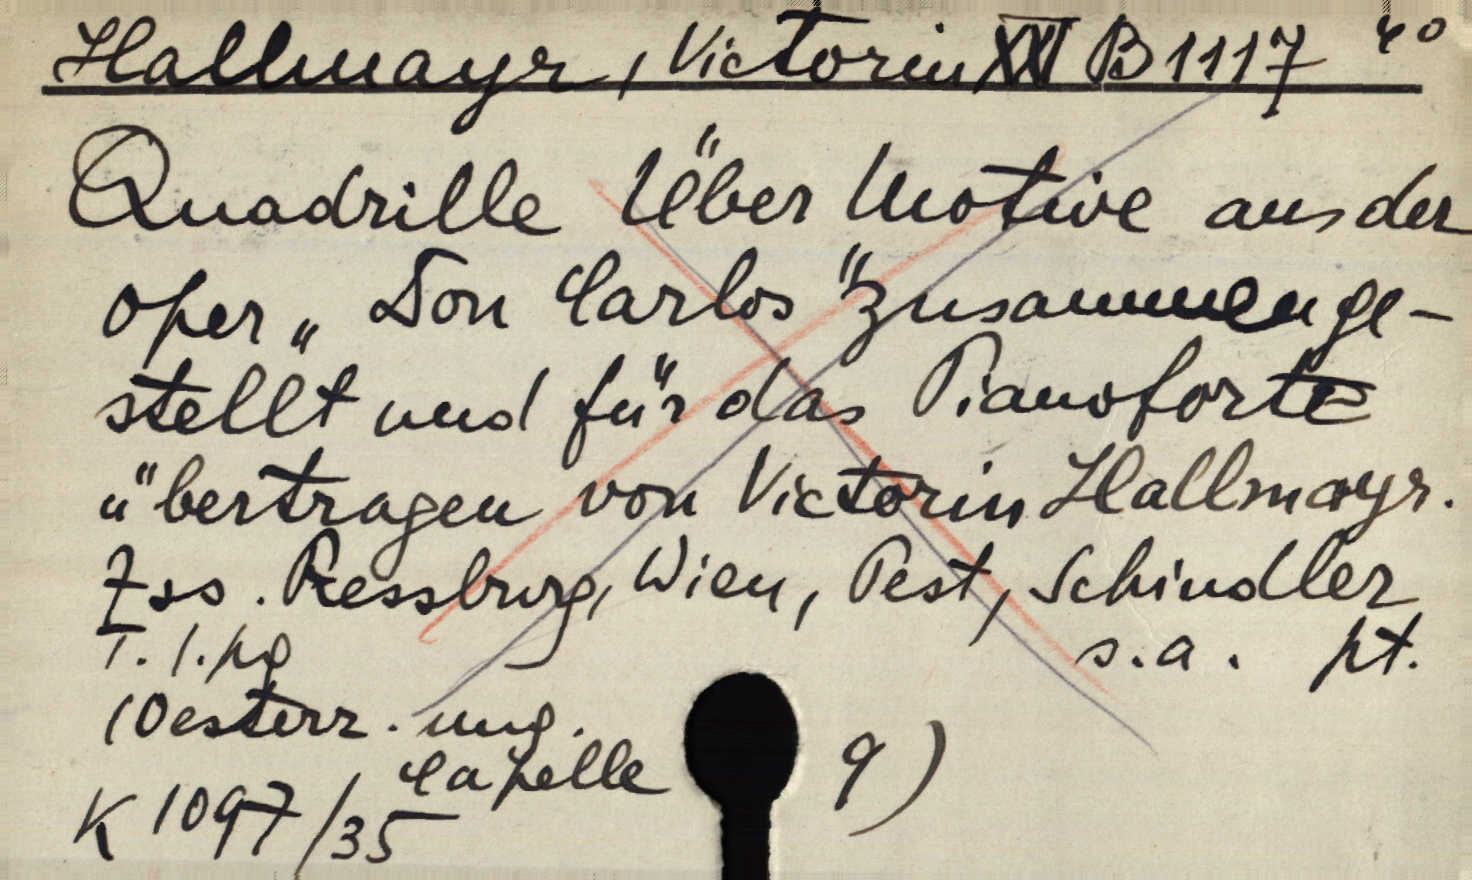 Hallmayr, Victorin XXI B 1117 4°
Quadrille Über Motive aus der
Oper „Don Carlos" zusammenge-
stellt und für das Pianoforte
übertragen von Victorin Hallmayr.
Pressburg, Wien, Pest, Schindler
T. 1. pg s.a. pt.
(Oesterr. ung.
Capelle 9)
K 1097/35